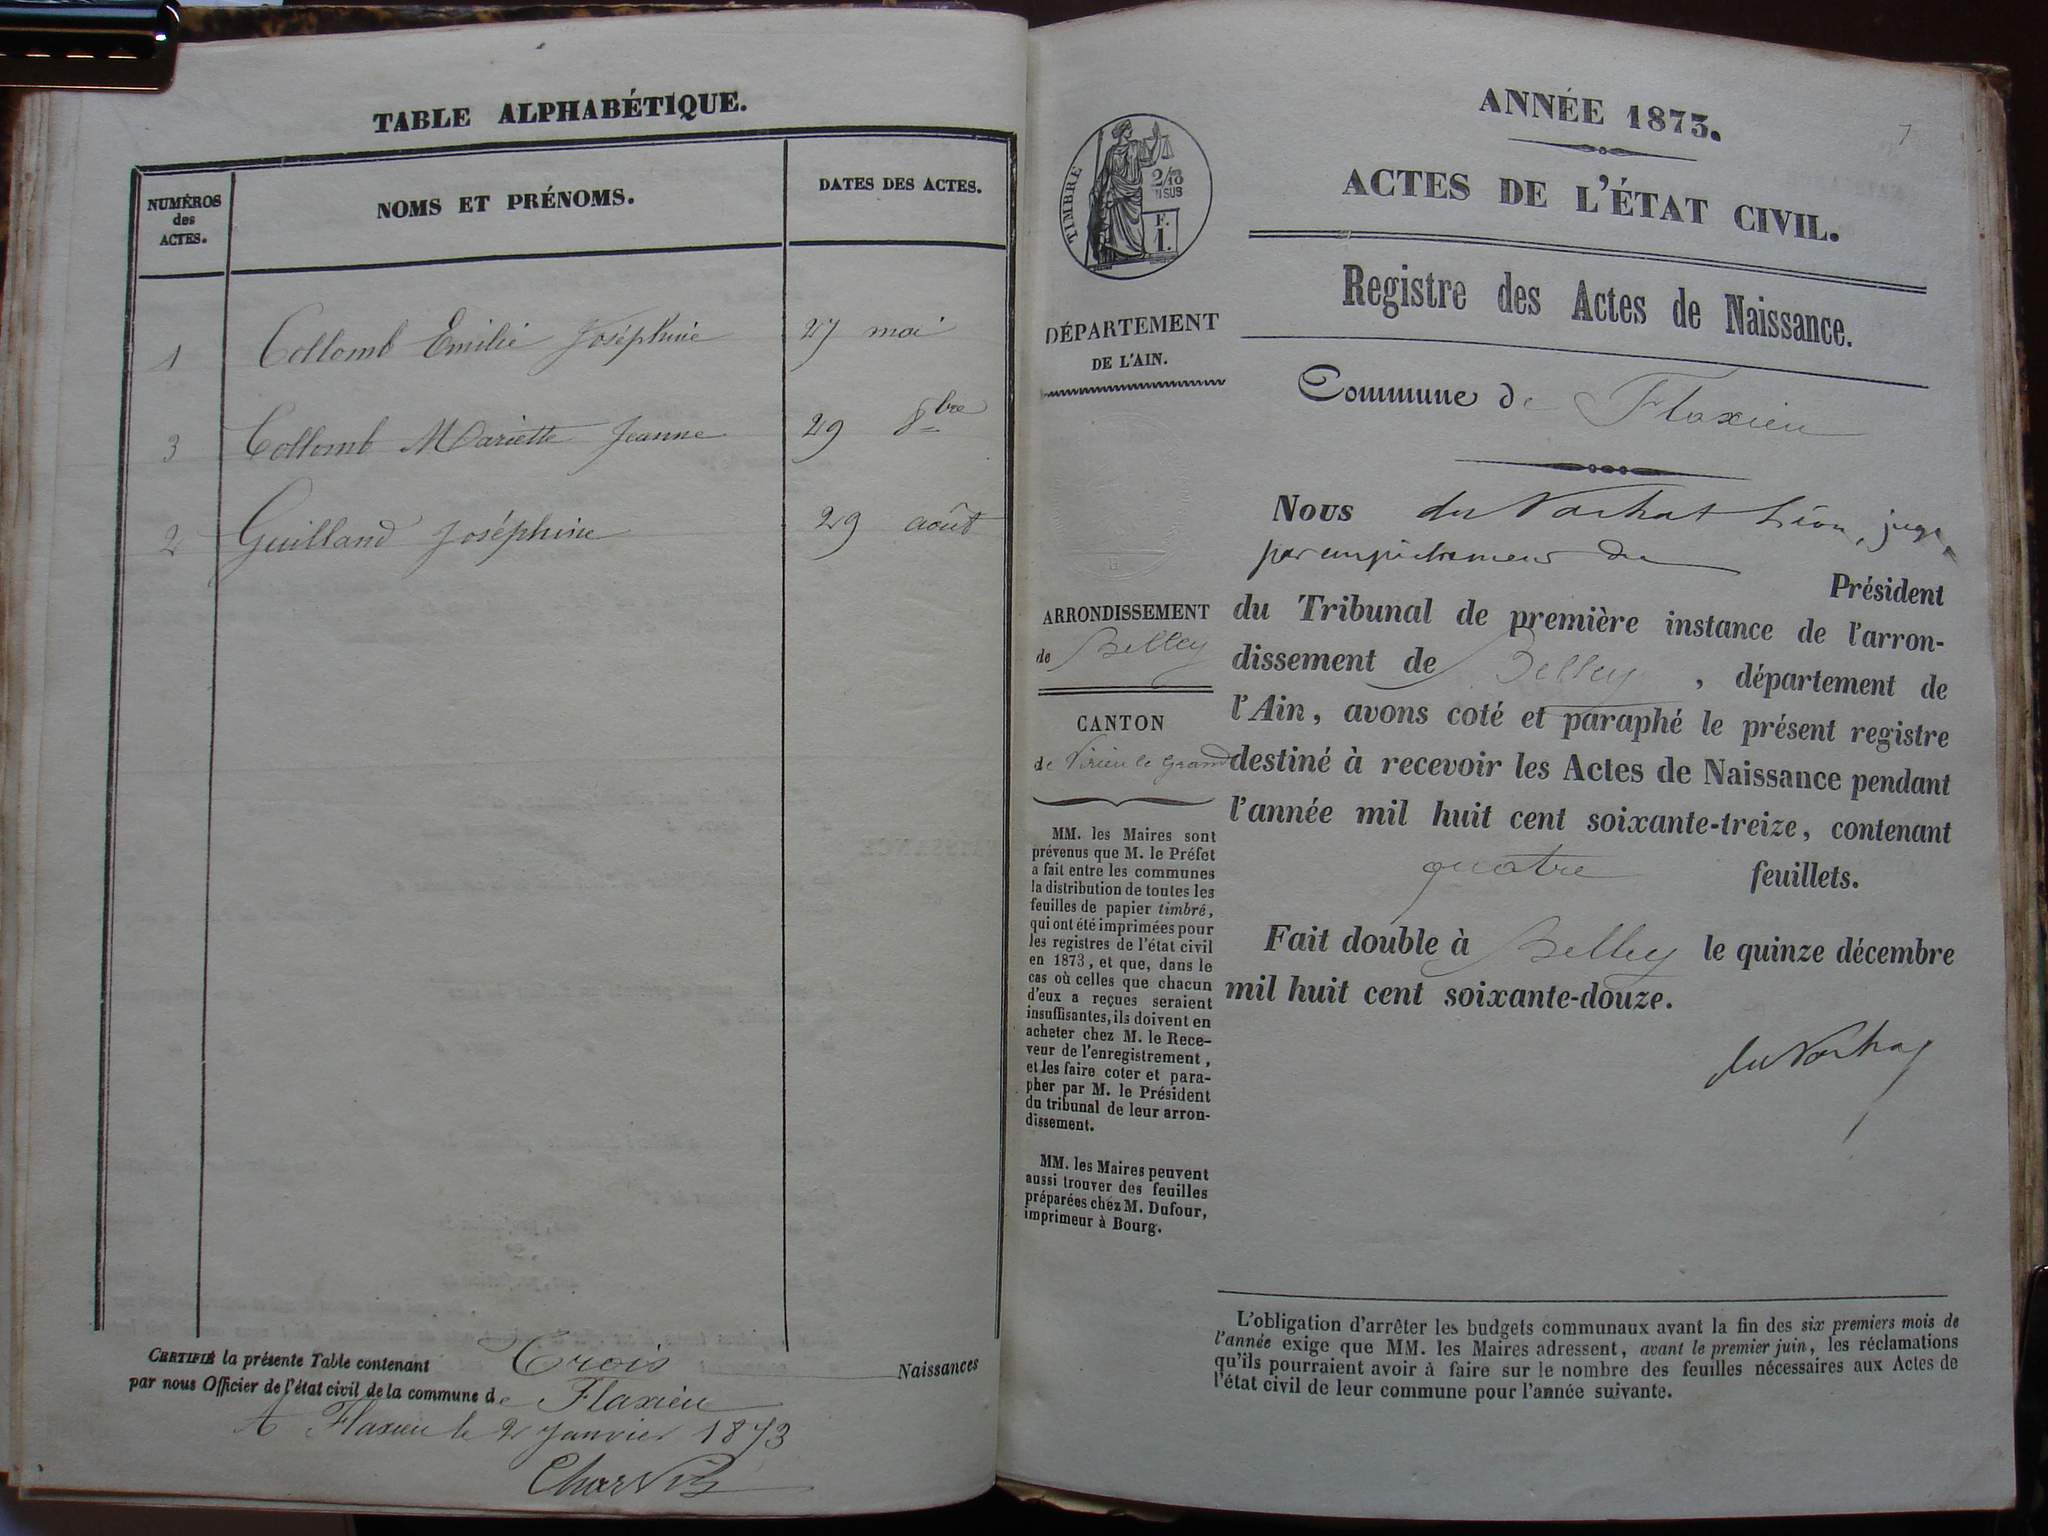 TABLE ALPHABÉTIQUE.
NUMÉROS
des
ACTES.
NOMS ET PRÉNOMS.
DATES DES ACTES.
1 Collomb Emilie Joséphine 27 mai
3 Collomb Mariette Jeanne 29 8bre
2 Guilland Joséphine 29 août
CERTIFIÉ la présente Table contenant Trois Naissances
par nous Officier de l'état civil de la commune de Flaxieu
A Flaxieu le 2 Janvier 1873
7
TIMBRE
2/10
EN SUS
F.
1.
DÉPARTEMENT
DE L'AIN.
ARRONDISSEMENT
de Belley
CANTON
de Virieu le Grand
MM. les Maires sont
prévenus que M. le Préfet
a fait entre les communes
la distribution de toutes les
feuilles de papier timbré,
qui ont été imprimées pour
les registres de l'état civil
en 1873, et que, dans le
cas où celles que chacun
d'eux a reçues seraient
insuffisantes, ils doivent en
acheter chez M. le Rece-
veur de l'enregistrement,
et les faire coter et para-
pher par M. le Président
du tribunal de leur arron-
dissement.
MM. les Maires peuvent
aussi trouver des feuilles
préparées chez M. Dufour,
imprimeur à Bourg.
ANNÉE 1873.
ACTES DE L'ÉTAT CIVIL.
Registre des Actes de Naissance.
Commune de Flaxieu
Nous du Vachat Léon, juge
par empêchement du
Président
du Tribunal de première instance de l'arron-
dissement de Belley, département de
l'Ain, avons coté et paraphé le présent registre
destiné à recevoir les Actes de Naissance pendant
l'année mil huit cent soixante-treize, contenant
quatre feuillets.
Fait double à Belley le quinze décembre
mil huit cent soixante-douze.
du Vachat
L'obligation d'arrêter les budgets communaux avant la fin des six premiers mois de
l'année exige que MM. les Maires adressent, avant le premier juin, les réclamations
qu'ils pourraient avoir à faire sur le nombre des feuilles nécessaires aux Actes de
l'état civil de leur commune pour l'année suivante.